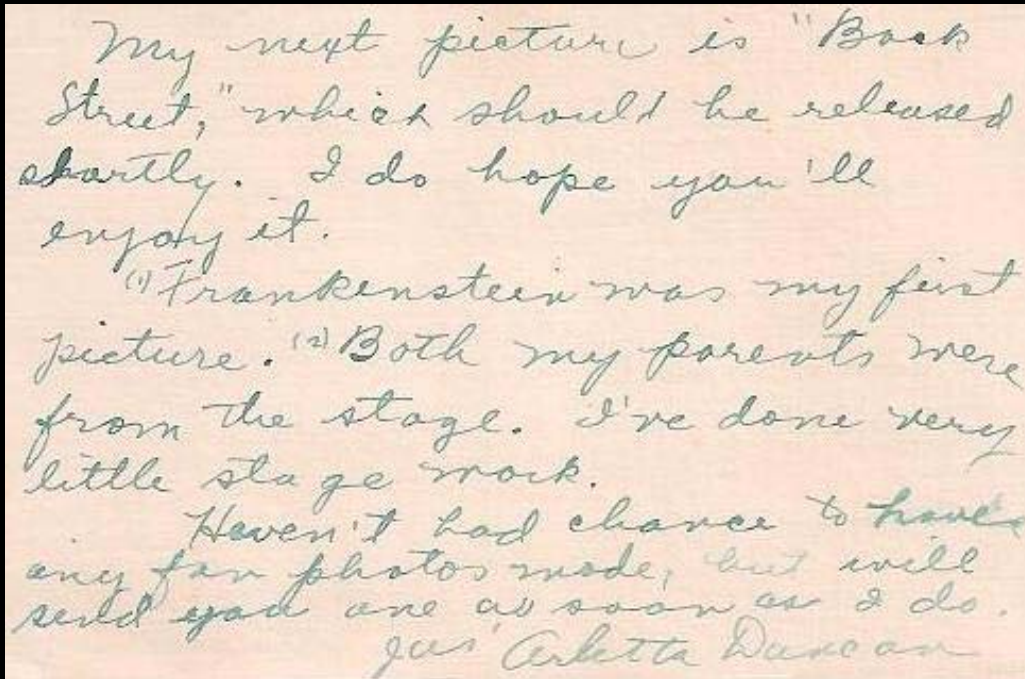 My next picture is "Back
Street," which should be released
shortly. I do hope you'll
enjoy it.
(1) Frankenstein was my first
picture. (2) Both my parents were
from the stage. I've done very
little stage work.
Haven't had chance to have
any fan photos made, but will
send you one as soon as I do.
Jus' Arletta Duncan